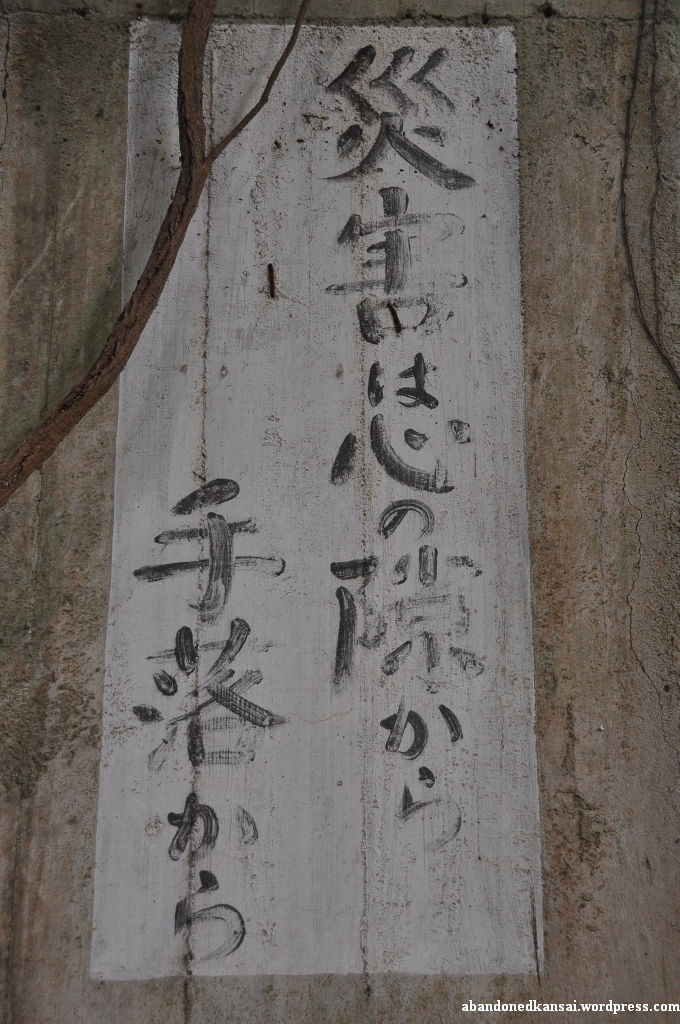 災害は心の隙から
手落から
abandonedkansai.wordpress.com